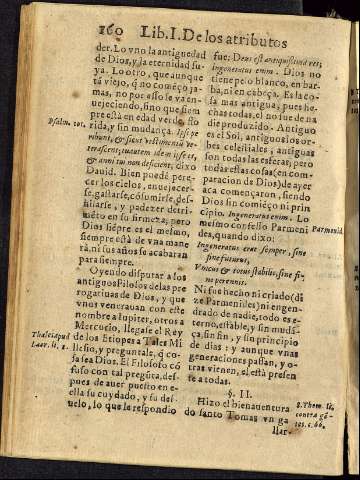 160 Lib. I. De los atributos
der. Lo vno la antiguedad
de Dios, y la eternidad su-
ya. Lo otro, que aunque
tã viejo, q̃ no començò ja-
mas, no por esso se va en-
uejeciendo, sino que siem
pre està en edad verde, flo
rida, y sin mudança. Ipsi pe
ribunt, & sicut vestimentũ ve-
terascent; tu autem idem ipse es,
& anni tui non deficient, dixo
Dauid. Bien puede pere-
cer los cielos, enuejecer-
se, gastarse, cõsumirse, des-
hilarse, y padecer detri-
mẽto en su firmeza; pero
Dios siẽpre es el mesmo,
siempre està de vna mane
ra, ni sus años se acabaran
para siempre.
Oyendo disputar a los
antiguos Filosofos de las pre
rogatiuas de Dios, y que
vnos venerauan con este
nombre a Iupiter, otros a
Mercurio, llegase el Rey
de los Etiopes a Tales Mi
lesio, y preguntale, q̃ co
sa sea Dios. El Filosofo cõ
fuso con tal pregũta, des-
pues de auer puesto en e-
lla su cuydado, y su des-
uelo, lo que le respondio
Psalm. 101.
Thales apud
Laer. li. 1.
fue: Deus est antiquissima res;
ingeneratus enim. Dios no
tiene pelo blanco, en bar-
ba, ni en cabeça. Es la co-
sa mas antigua, pues he-
chas todas, el no fue de na
die produzido. Antiguo
es el Sol, antiguos los or-
bes celestiales, antiguas
son todas las esferas, pero
todas estas cosas (en com-
paracion de Dios) de ayer
aca començaron, siendo
Dios sin comieço ni prin
cipio. Ingeneratus enim. Lo
mesmo confesso Parmeni
des, quando dixo:
Ingeneratus ever semper, sine
fine futurus,
Vnicus & totus stabilis, sine fi-
ne perennis.
Ni fue hecho ni criado (di
ze Parmenides) ni engen-
drado de nadie, todo es e-
terno, estable, y sin mudã-
ça, sin fin, y sin principio
de dias: y aunque vnas
generaciones passan, y o-
tras vienen, el està presen
te a todas.
§. II.
Hizo el bienauentura
do santo Tomas vn ga
llar-
Parmenid.
S. Thom. li.
contra gẽ-
tes. c. 66.